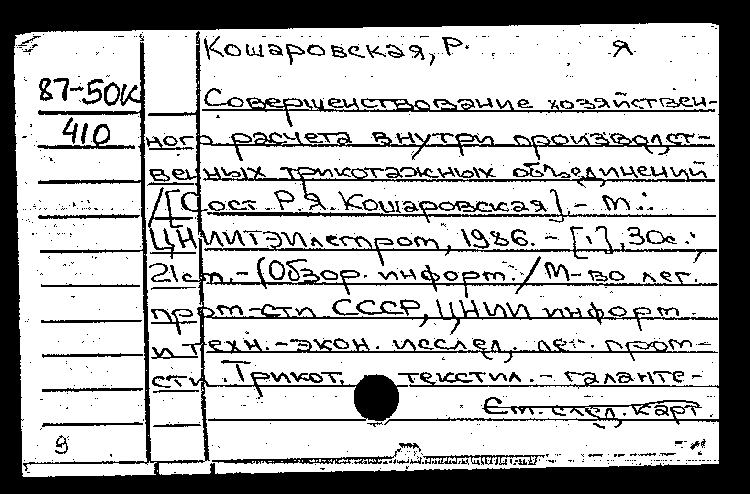 Кошаровская, Р. Я
87-50к
Совершенствование хозяйствен-
410
ного расчета внутри производст-
венных трикотажных объединений
/[Сост. Р.Я. Кошаровская]. - М.:
ЦНИИТЭИлегпром, 1986. - [1], 30с.;
21см. - (Обзор. информ. / М-во лег.
пром-сти СССР, ЦНИИ информ.
и техн.-экон. исслед. лег. пром-
сти. Трикот. текстил.-галанте-
См. след. карт.
9